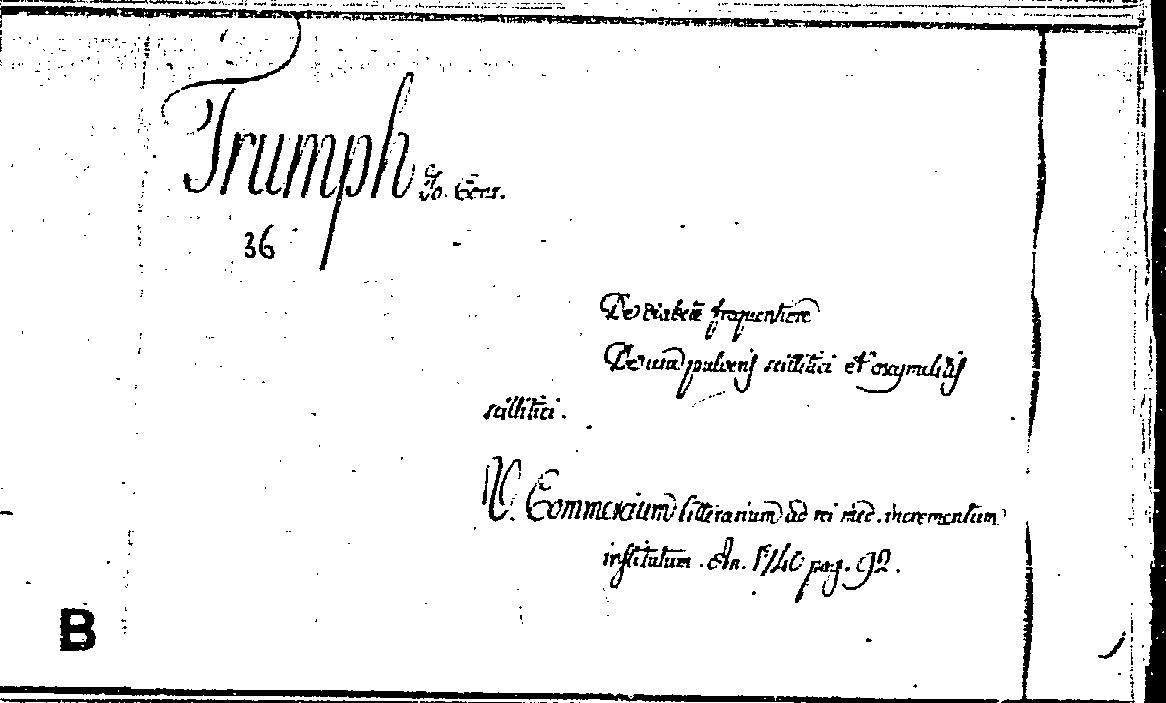 Trumph Jo. Conr.
36
De diabete frequentiore
De usu pulveris scillitici et oxymelitis
scillitici.
V. Commercium litterarium ad rei med. incrementum
institutum. An. 1740 pag. 92.
B